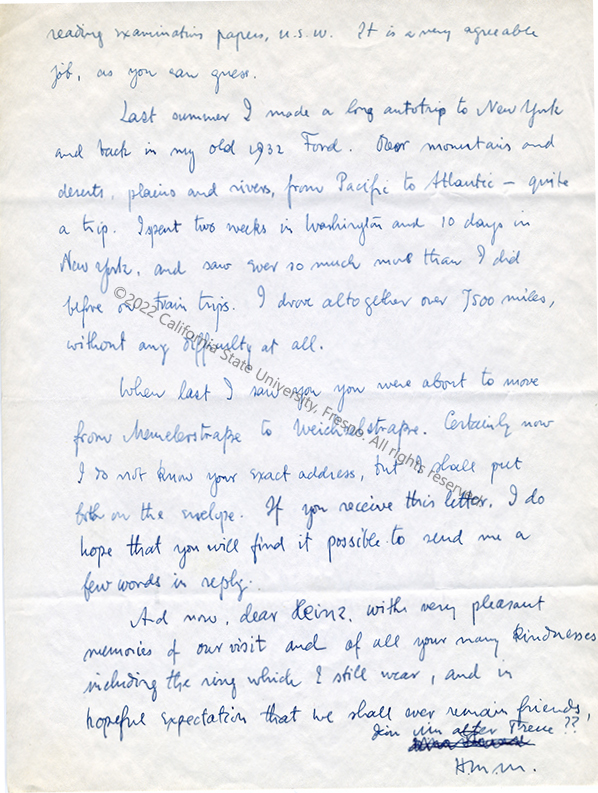 reading examination papers, u.s.w. It is a very agreeable
job, as you can guess.
Last summer I made a long autotrip to New York
and back in my old 1932 Ford. Over mountains and
deserts, plains and rivers, from Pacific to Atlantic — quite
a trip. I spent two weeks in Washington and 10 days in
New York, and saw ever so much more than I did
before on train trips. I drove altogether over 7500 miles,
without any difficulty at all.
When last I saw you you were about to move
from Memelerstraße to Weichselstraße. Certainly now
I do not know your exact address, but I shall put
both on the envelope. If you receive this letter, I do
hope that you will find it possible to send me a
few words in reply.
And now, dear Heinz, with very pleasant
memories of our visit and of all your many kindnesses
including the ring which I still wear, and in
hopeful expectation that we shall ever remain friends,
Dein in alter Treue??
H.m.m.
©2022 California State University, Fresno. All rights reserved.